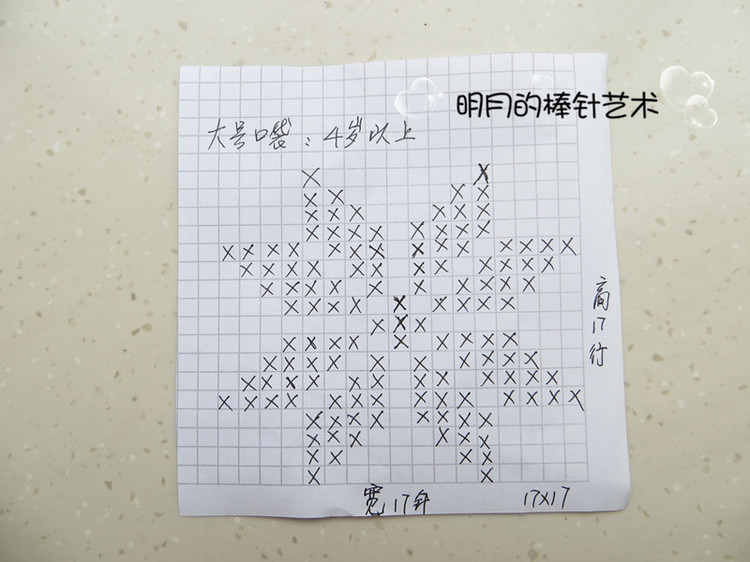 明月的棒针艺术
大号口袋：4岁以上
高17行
宽17针
17×17